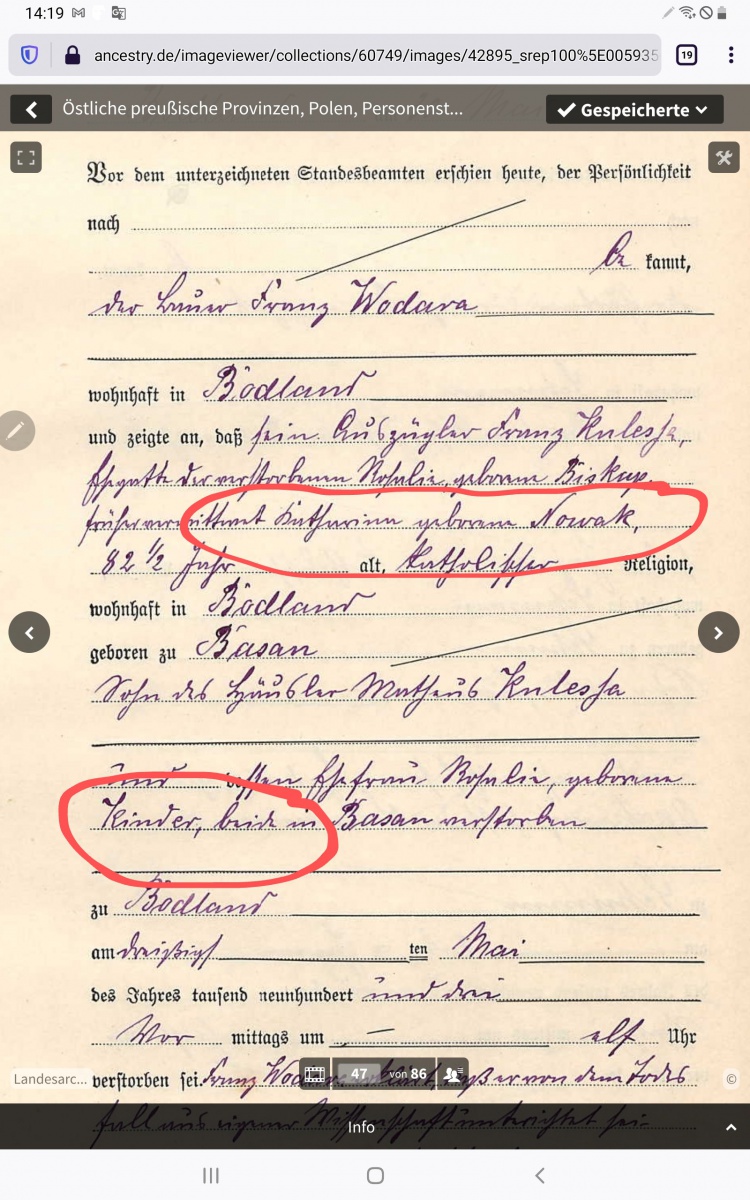 14:19
ancestry.de/imageviewer/collections/60749/images/42895_srep100%5E005935
19
Östliche preußische Provinzen, Polen, Personenst...
Gespeicherte
Vor dem unterzeichneten Standesbeamten erschien heute, der Persönlichkeit
nach
be kannt,
der Bauer Franz Wodara
wohnhaft in Bodland
und zeigte an, daß sein Auszügler Franz Kulessa,
Ehegatte der verstorbenen Rosalie, geborene Biskup,
früher verwittwet Katharina geborene Nowak,
82 1/2 Jahr alt, katholischer Religion,
wohnhaft in Bodland
geboren zu Basan
Sohn des Häusler Matheus Kulessa
und dessen Ehefrau Rosalie, geborene
Kinder, beide in Basan verstorben
zu Bodland
am dreißigsten Mai
des Jahres tausend neunhundert und drei
Vor mittags um elf Uhr
Landesarc...
47 von 86
©
verstorben sei. Franz daß er von dem Todes
fall aus eigener Wissenschaft unterrichtet sei.
Info